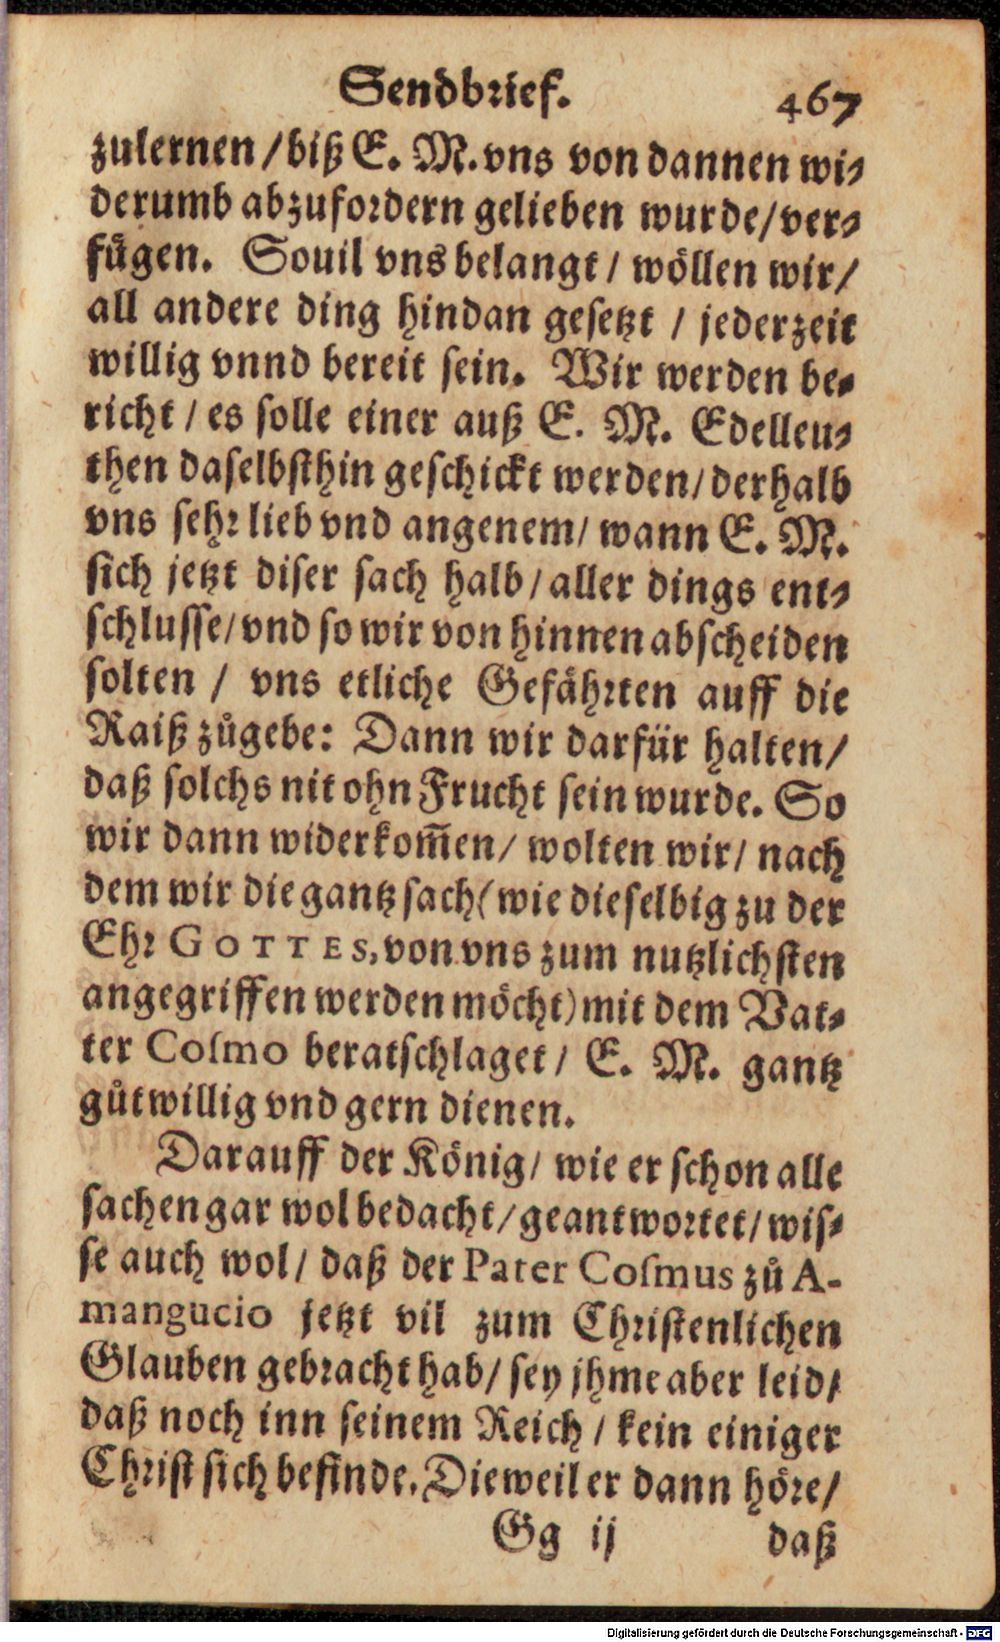 Sendbrief. 467
zulernen / biß E. M. vns von dannen wi⸗
derumb abzufordern gelieben wurde / ver⸗
fuͤgen. Souil vns belangt / woͤllen wir /
all andere ding hindan gesetzt / jederzeit
willig vnnd bereit sein. Wir werden be⸗
richt / es solle einer auß E. M. Edelleu⸗
then daselbsthin geschickt werden / derhalb
vns sehr lieb vnd angenem / wann E. M.
sich jetzt diser sach halb / aller dings ent⸗
schlusse / vnd so wir von hinnen abscheiden
solten / vns etliche Gefaͤhrten auff die
Raiß zůgebe: Dann wir darfür halten /
daß solchs nit ohn Frucht sein wurde. So
wir dann widerkom̃en / wolten wir / nach
dem wir die gantz sach (wie dieselbig zu der
Ehr GOTTES, von vns zum nutzlichsten
angegriffen werden moͤcht) mit dem Vat⸗
ter Coſmo beratschlaget / E. M. gantz
gůtwillig vnd gern dienen.
Darauff der Koͤnig / wie er schon alle
sachen gar wol bedacht / geantwortet / wis⸗
se auch wol / daß der Pater Coſmus zů A-
mangucio jetzt vil zum Christenlichen
Glauben gebracht hab / sey jhme aber leid /
daß noch inn seinem Reich / kein einiger
Christ sich befinde. Dieweil er dann hoͤre /
Gg ij daß
Digitalisierung gefördert durch die Deutsche Forschungsgemeinschaft - DFG